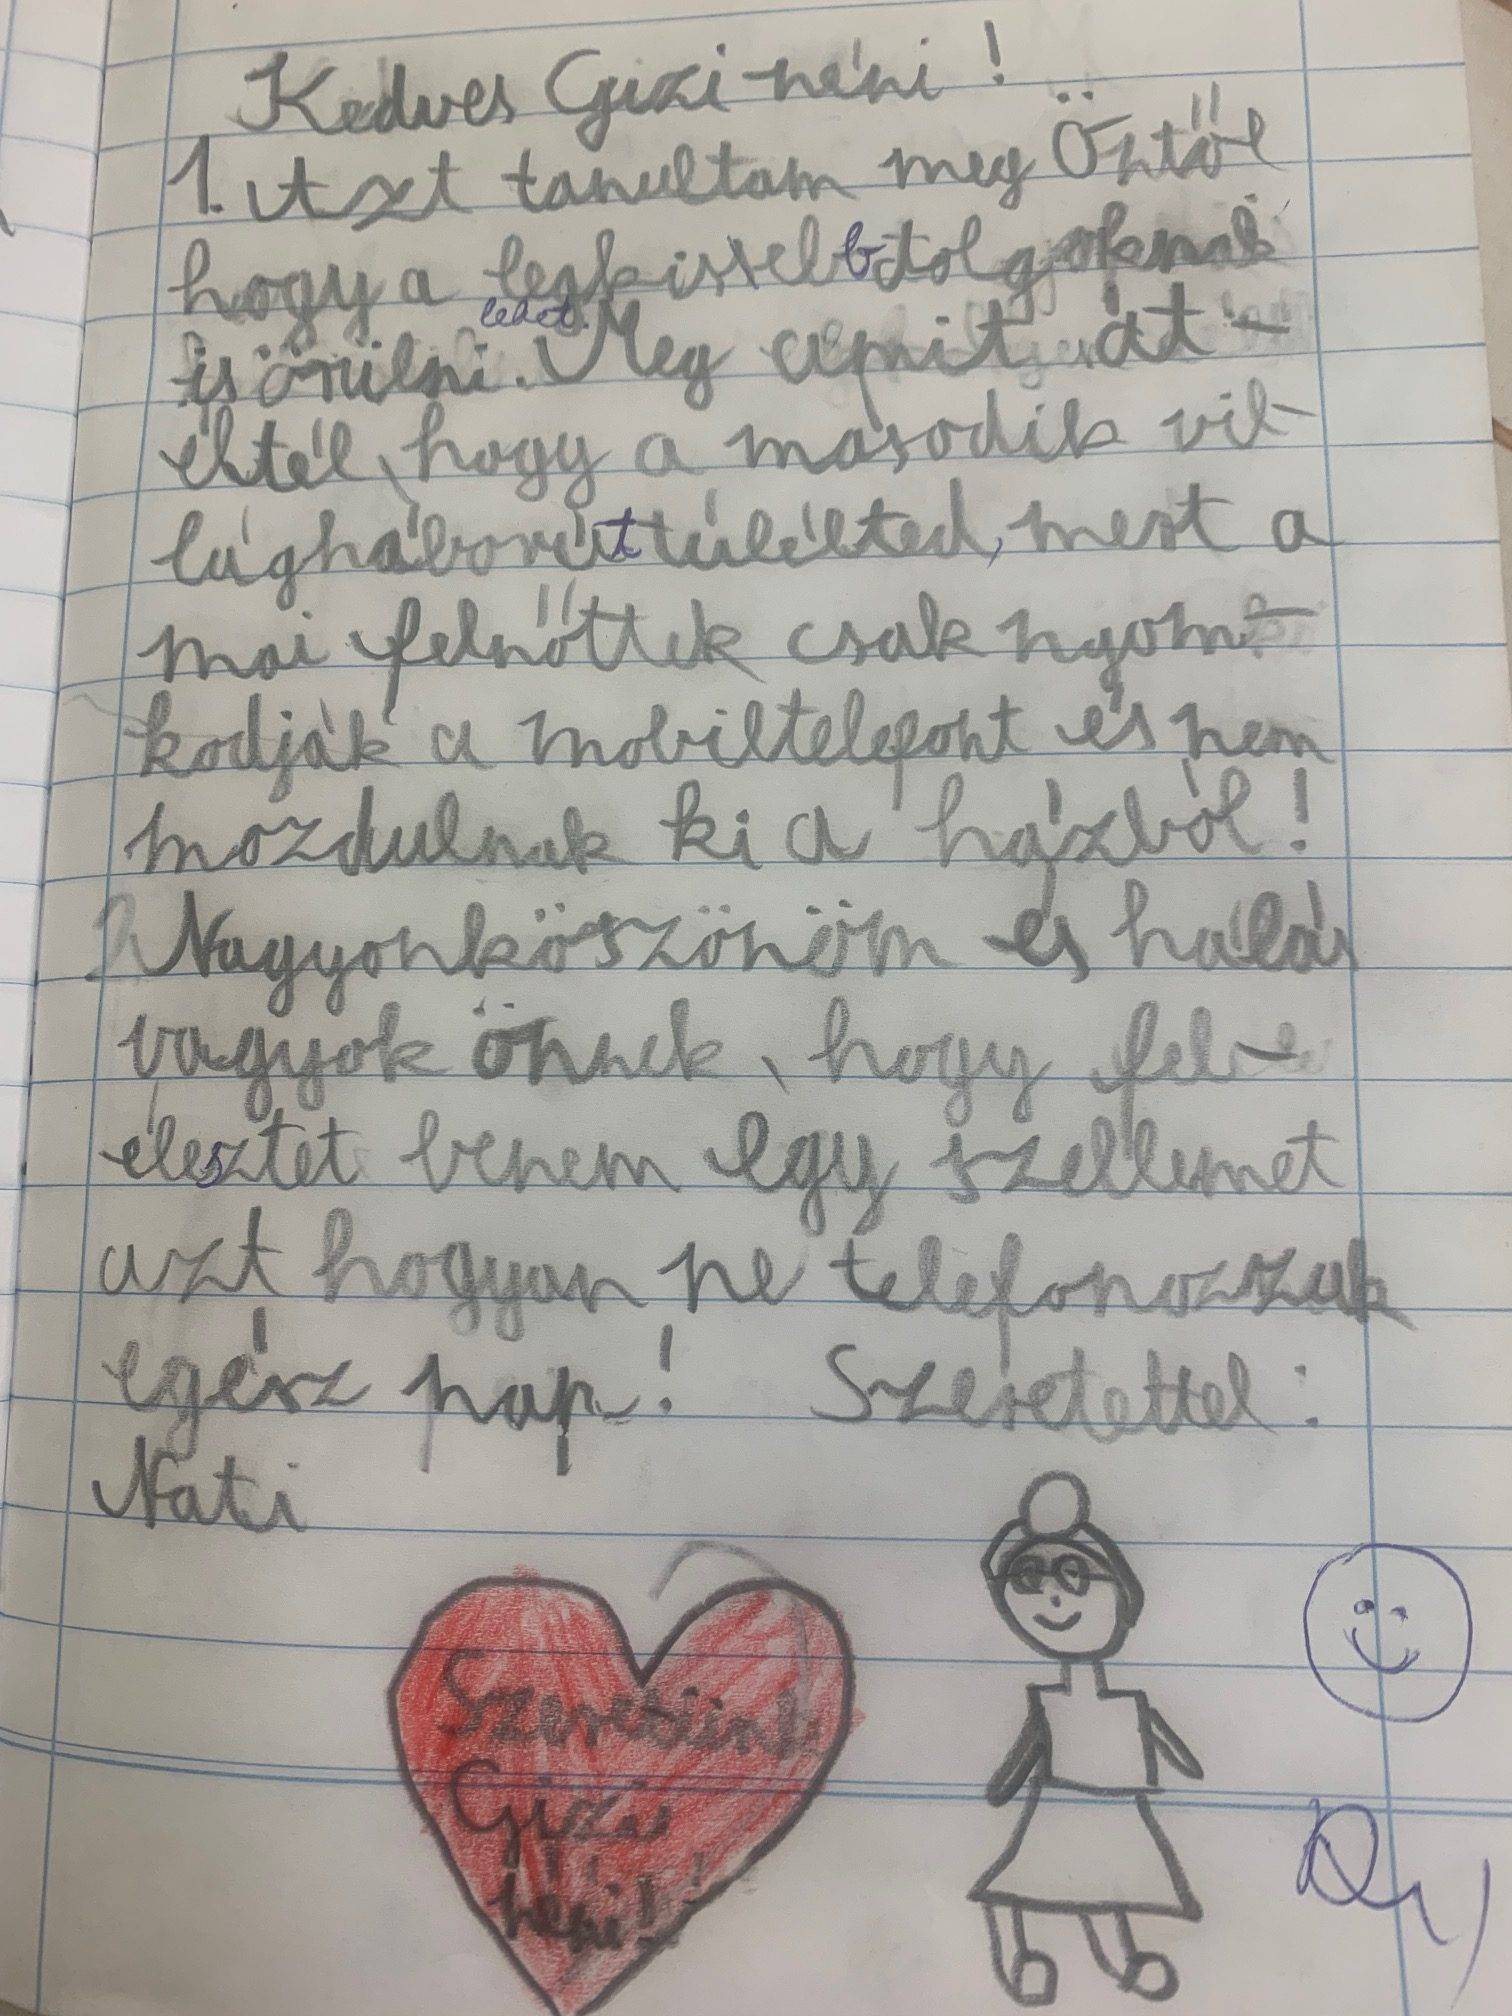 Kedves Gizi néni!
1. Azt tanultam meg Öntől
hogy a legkissebb dolgoknak
is örülni lehet. Meg amit át-
éltél, hogy a második vil-
lágháborút túlélted, mert a
mai felnőttek csak nyom-
kodják a mobiltelefont és nem
mozdulnak ki a házból!
2. Nagyonköszönöm és hálás
vagyok önnek, hogy fel-
élesztet benem egy szellemet
azt hogyan ne telefonozszuk
egész nap! Szeretettel:
Nati
Szeretünk
Gizi
néni!